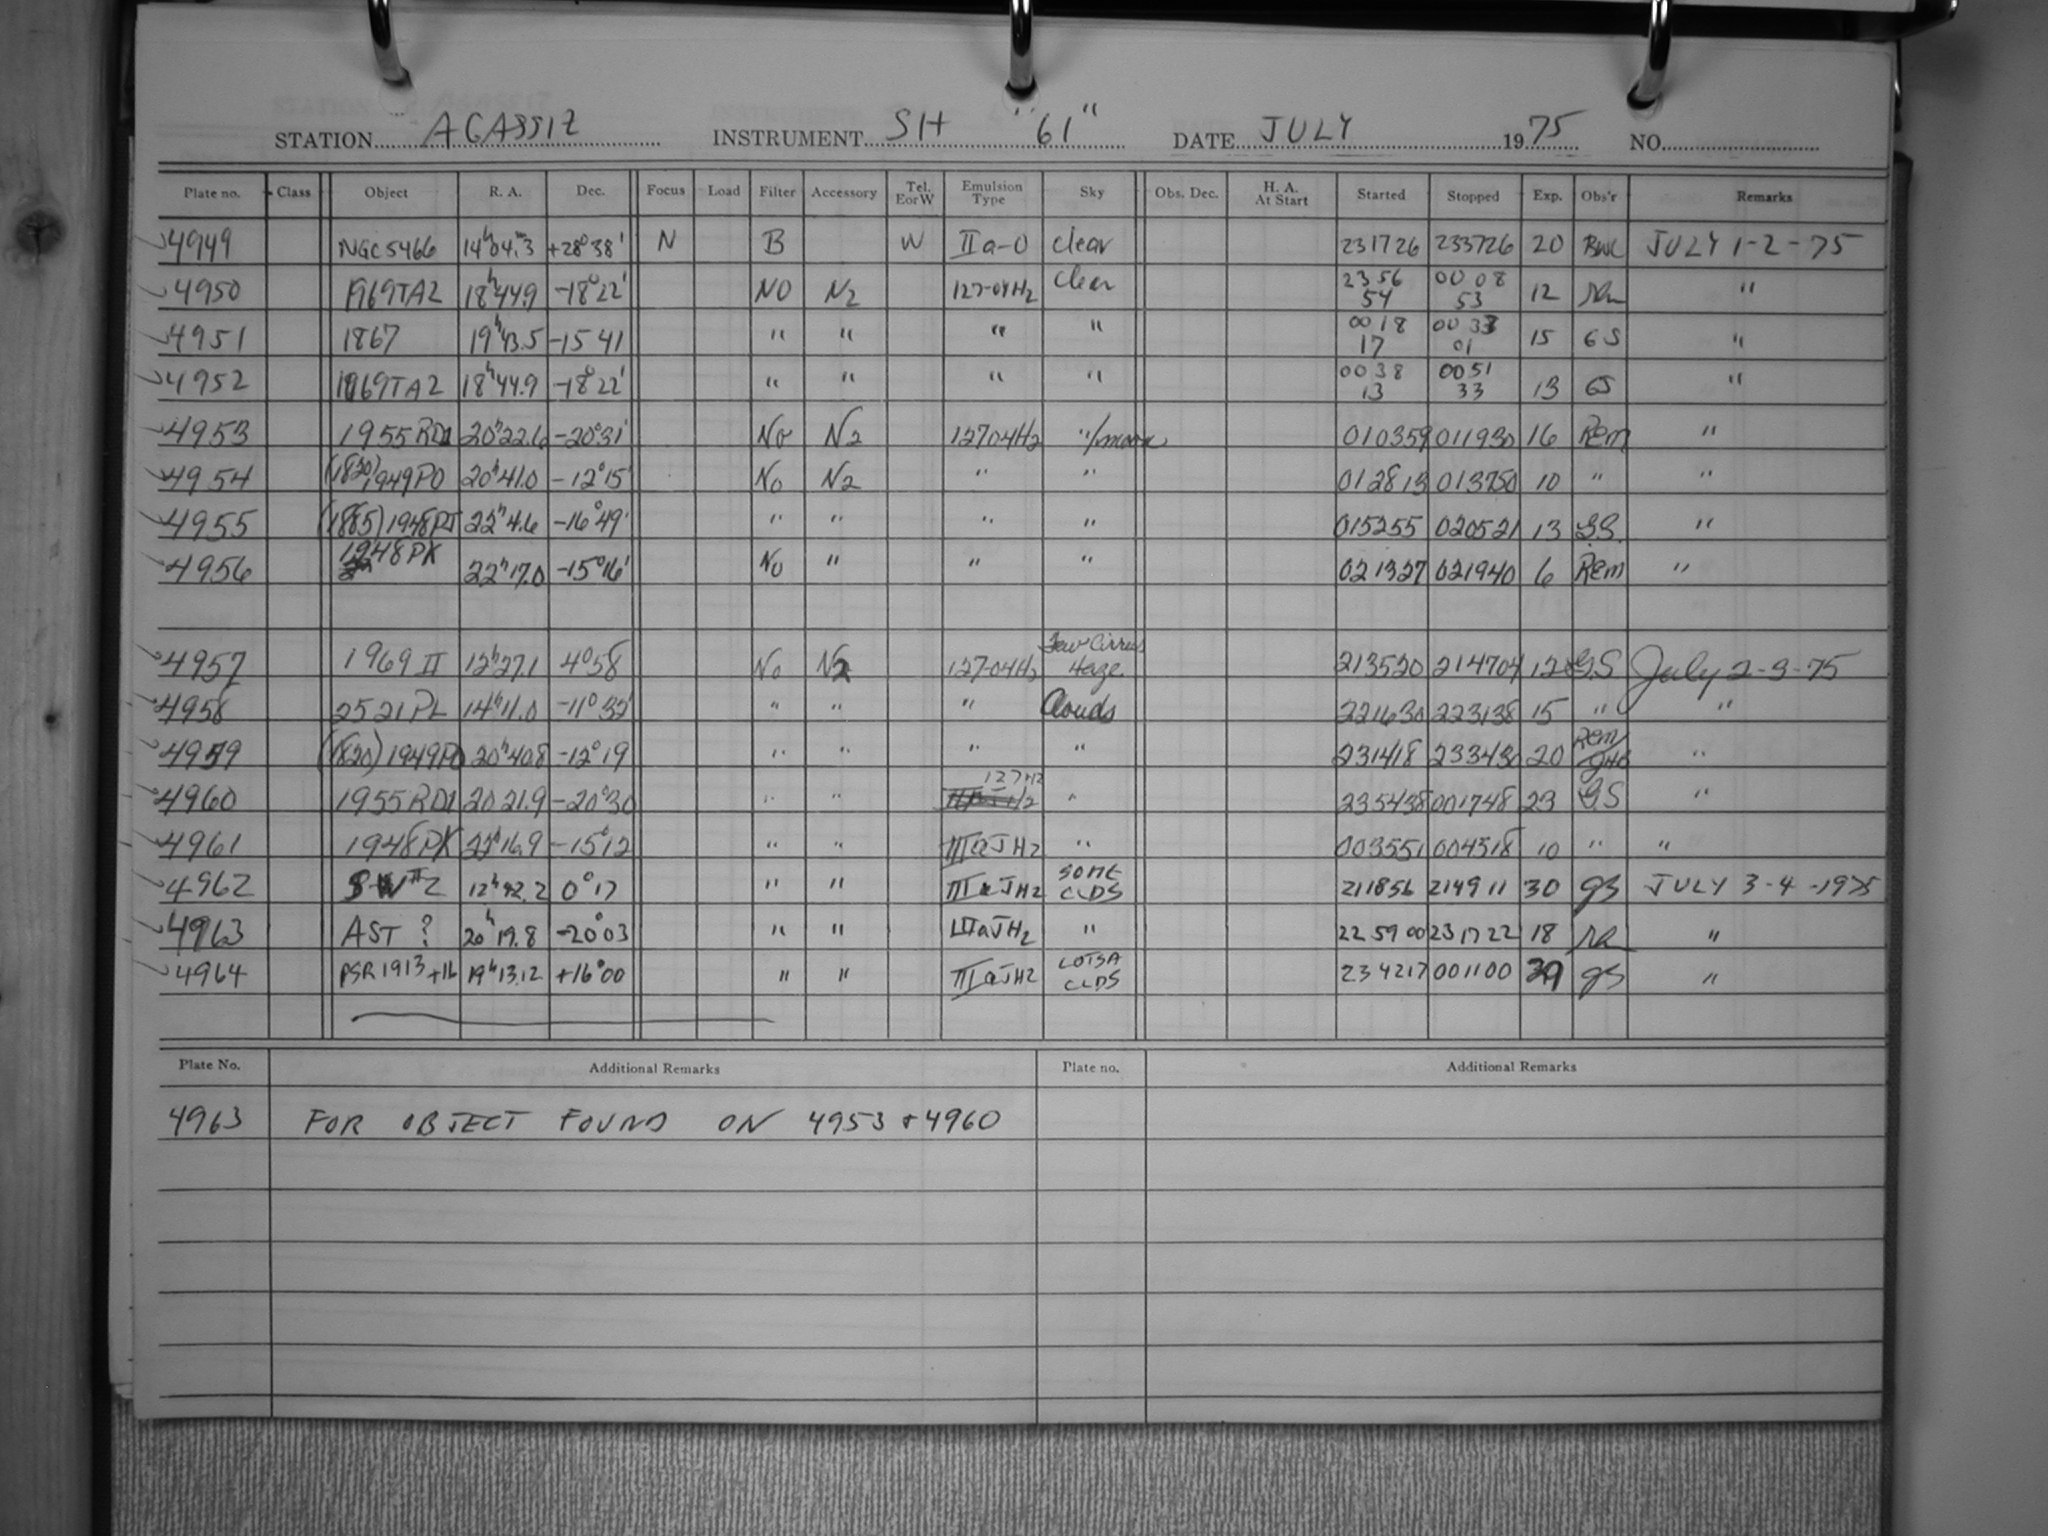 STATION AGASSIZ INSTRUMENT SIH "61" DATE JULY 1975 NO.
Plate no. Class Object R. A. Dec. Focus Load Filter Accessory Tel. EorW Emulsion Type Sky Obs. Dec. H. A. At Start Started Stopped Exp. Obs'r Remarks
4949 NGC5466 14h04m.3 +28°38' N B W IIa-O clear 231726 233726 20 JULY 1-2-75
4950 1969TA2 18h44.9 -18°22' NO N2 127-04H2 clear 2356 54 0008 53 12 "
4951 1867 19h43.5 -15 41 " " " " 0018 17 0033 01 15 GS "
4952 1969TA2 18h44.9 -18°22' " " " " 0038 13 0051 33 13 GS "
4953 1955RD1 20h22.6 -20°31' No N2 12704H2 "/moon 010359 011930 16 Rem "
4954 (1820) 1949PO 20h41.0 -12°15' No N2 " " 012813 013750 10 " "
4955 (1885) 1948PJ 22h4.6 -16°49' " " " " 015255 020521 13 G.S. "
4956 1948PK 22h17.0 -15°16' No " " " 021327 021940 6 Rem "
4957 1969 II 12h27.1 4°58 No N2 127-04H2 Few Cirrus Haze 213520 214704 12 G.S July 2-3-75
4958 2521PL 14h11.0 -11°32' " " " Clouds 221630 223138 15 " "
4959 (1820) 1949PO 20h40.8 -12°19 " " " " 231418 233430 20 Rem/ "
4960 1955RD1 2021.9 -20°30 " " 127H2 " 235438 001748 23 G.S "
4961 1948PK 22h16.9 -15°12 " " IIIaJH2 " 003551 004518 10 " "
4962 SW#2 12h42.2 0°17 " " IIIaJH2 SOME CLDS 211856 214911 30 gs JULY 3-4-1975
4963 AST ? 20h19.8 -20°03 " " IIIaJH2 " 225900 231722 18 "
4964 PSR1913+16 19h13.12 +16°00 " " IIIaJH2 LOTSA CLDS 234217 001100 29 gs "
Plate No. Additional Remarks Plate no. Additional Remarks
4963 FOR OBJECT FOUND ON 4953 & 4960